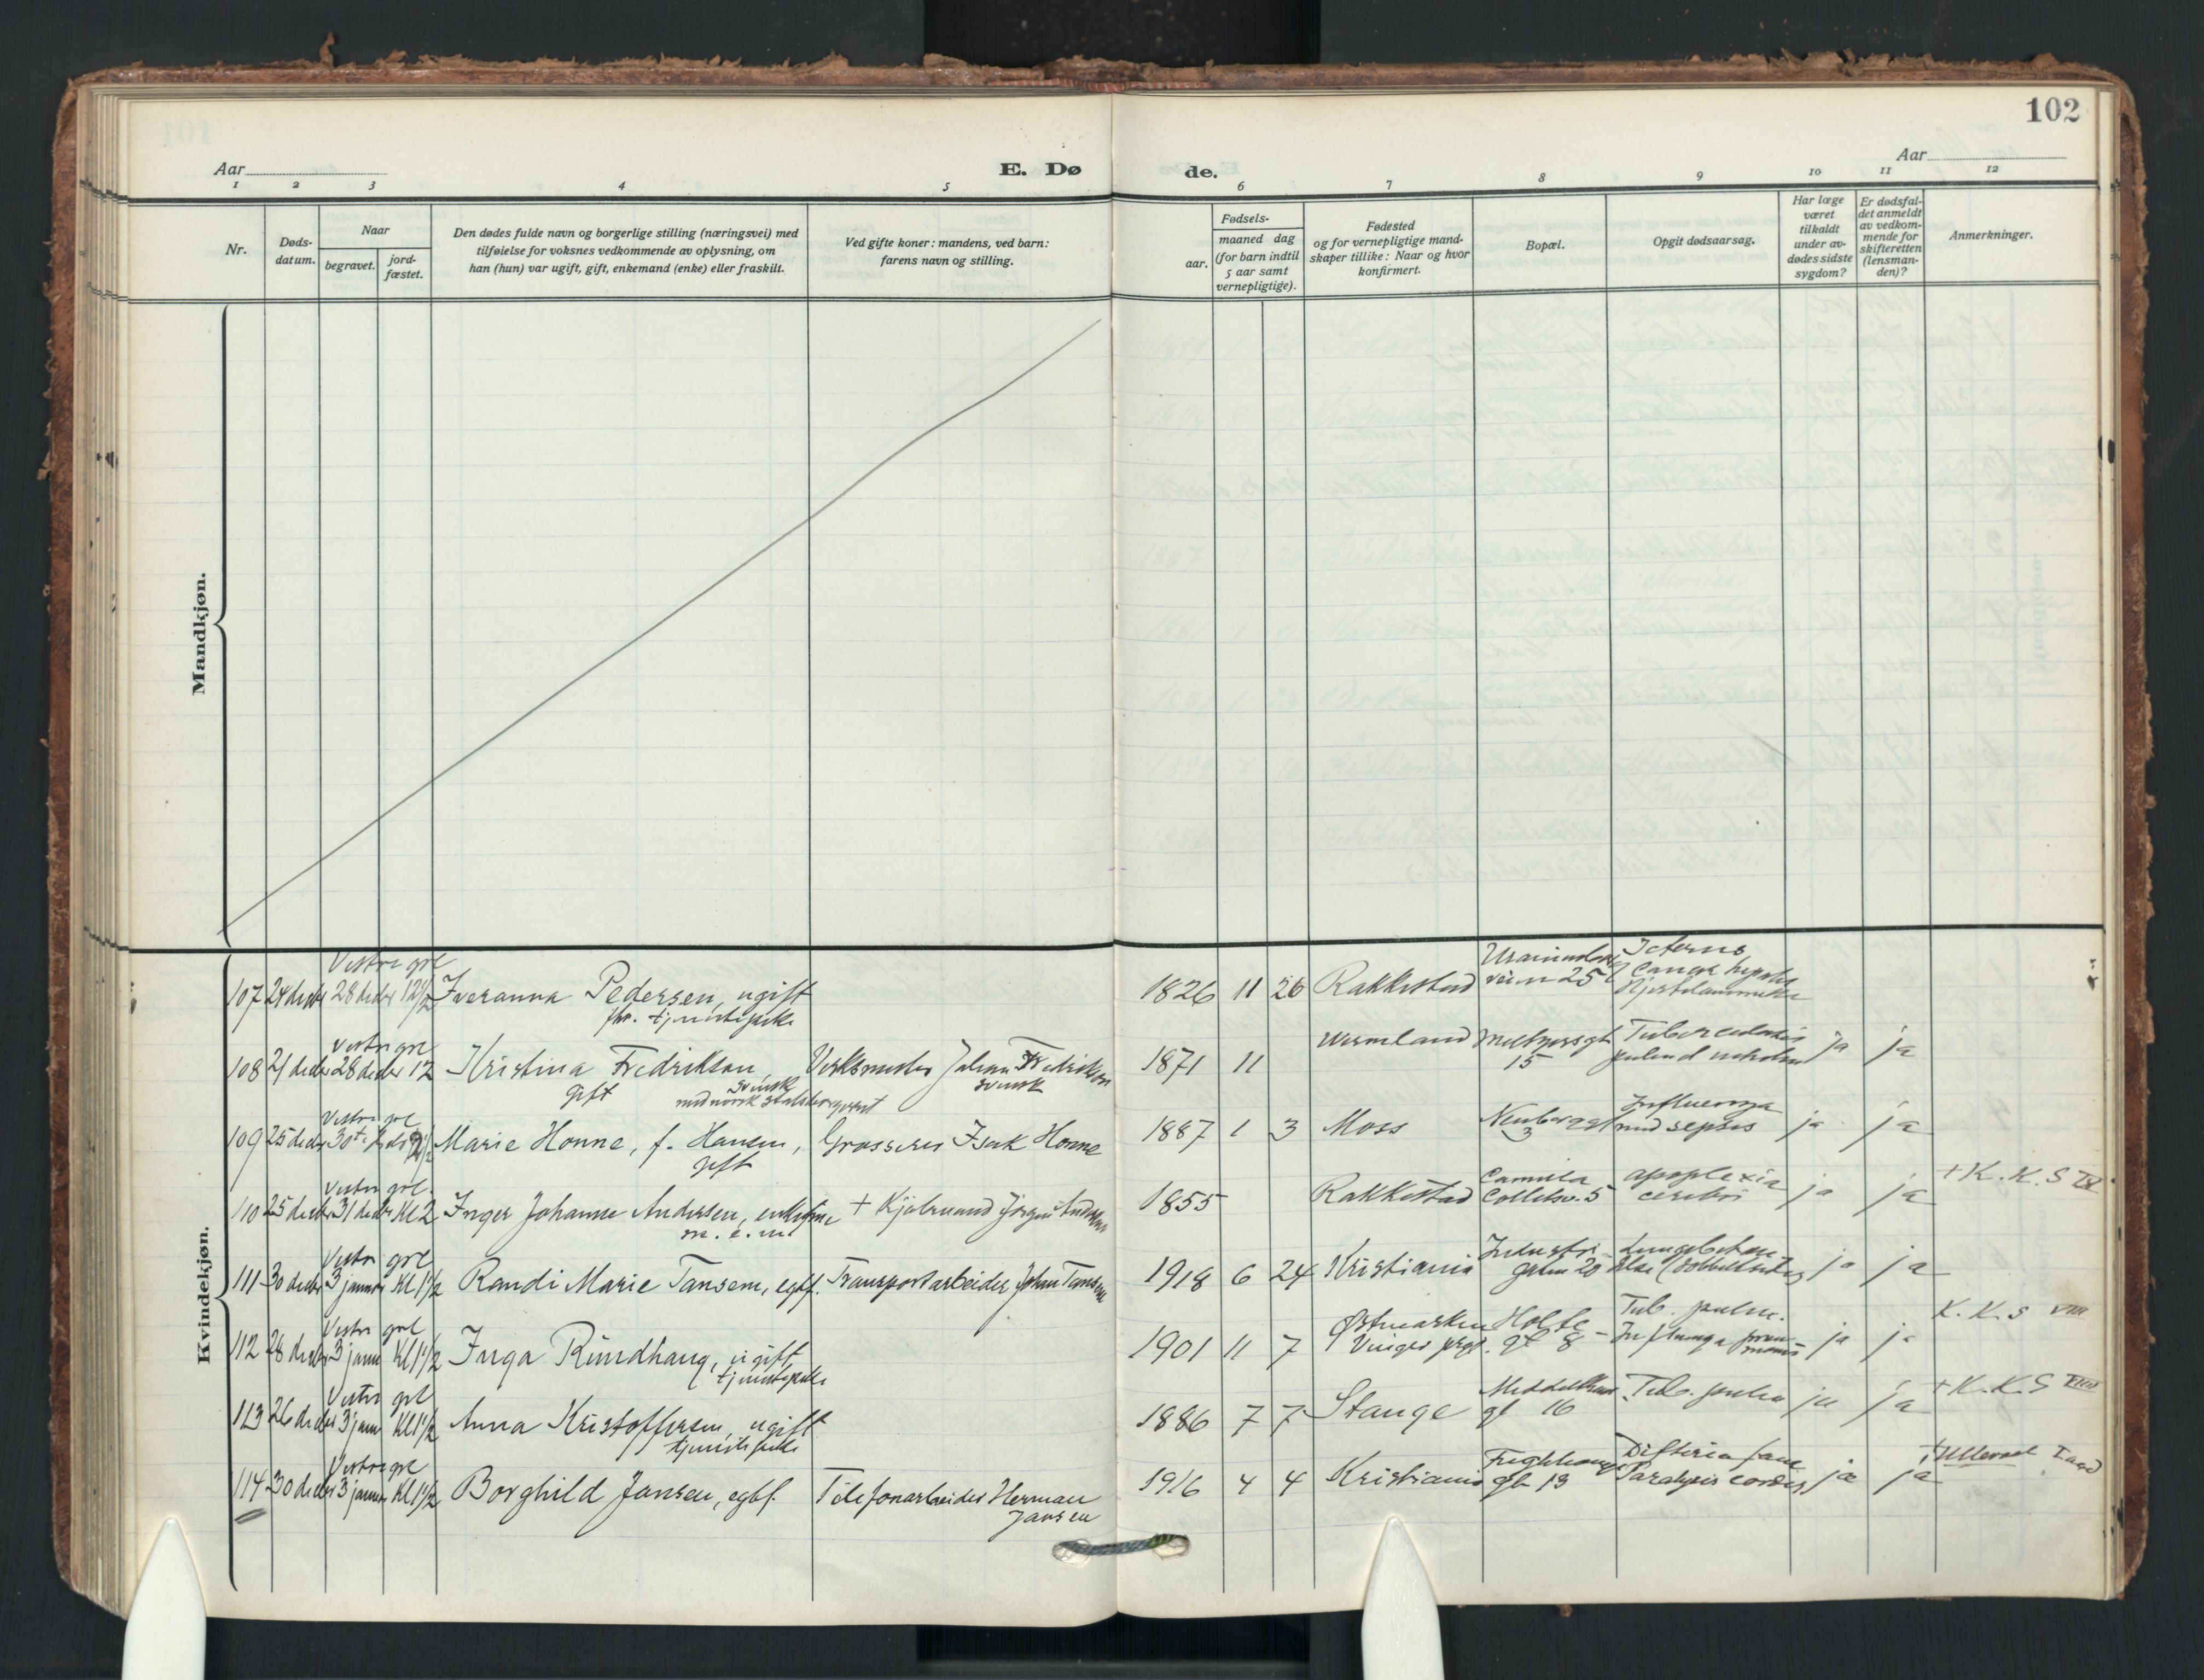 102
Aar
E. Dø de.
Aar
1 2 3 4 5 6 7 8 9 10 11 12
Nr.
Døds-
datum.
Naar
begravet.
jord-
fæstet.
Den dødes fulde navn og borgerlige stilling (næringsvei) med
tilføielse for voksnes vedkommende av oplysning, om
han (hun) var ugift, gift, enkemand (enke) eller fraskilt.
Ved gifte koner: mandens, ved barn:
farens navn og stilling.
Fødsels-
aar.
maaned dag
(for barn indtil
5 aar samt
vernepligtige).
Fødested
og for vernepligtige mand-
skaper tillike: Naar og hvor
konfirmert.
Bopæl.
Opgit dødsaarsag.
Har læge
været
tilkaldt
under av-
dødes sidste
sygdom?
Er dødsfal-
det anmeldt
av vedkom-
mende for
skifteretten
(lensman-
den)?
Anmerkninger.
Mandkjøn.
Kvindekjøn.
Vestre grl
107 24 decbr 28 decbr 12½ Iveranna Pedersen, ugift 1826 11 26 Rakkestad veien 25 Icterus
Cancer hepatis
fhv. tjenestepike
Vestre grl
108 21 decbr 28 decbr 12 Kristina Fredrikson, Verksmester Johan Fredrikson 1871 11 Wermland 15 Tuberculosis ja ja
gift svensk svensk
Vestre grl
109 25 decbr 30te Marie Honne, f. Hansen, Grosserer Isak Honne 1887 1 3 Moss Neuberggt 3 Influenza
med sepsis ja ja
gift
Vestre grl.
110 25 decbr 31 decbr Kl 2 Inger Johanne Andersen, enkefrue + Kjølmand Jørgen Andersen 1855 Rakkestad Camilla
Colletsv. 5 apoplexia
cerebri ja ja + K. K. S IX
Vestre grl
111 30 decbr 3 januar Kl 1½ Randi Marie Tansem, egtf. Transportarbeider Johan Tansem 1918 6 24 Kristiania Industri
gaten 20 ja ja
Vestre grl
112 28 decbr 3 janu Kl 1½ Inga Rundhaug, ugift 1901 11 7 Østmarken
Vinger prgj. Holte
gt 8 Tub. pulm.
Influenza ja ja K. K. S VIII
tjenestepike
Vestre grl
113 26 decbr 3 janu Kl 1½ Anna Kristoffersen, ugift 1886 7 7 Stange gt 16 Tub. pulm ja ja + K. K. S VIII
tjenestepike
Vestre grl
114 30 decbr 3 januar Kl 1½ Borghild Jansen, egtf. Telefonarbeider Herman
Jansen 1916 4 4 Kristiania gt 13 Difteria fauc
Paralysis cordis ja ja + Ullevaal